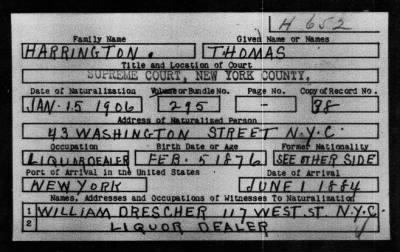 H 652
Family Name Given Name or Names
HARRINGTON. THOMAS
Title and Location of Court
SUPREME COURT, NEW YORK COUNTY.
Date of Naturalization Volume or Bundle No. Page No. Copy of Record No.
JAN. 15 1906 295 - 38
Address of Naturalized Person
43 WASHINGTON STREET N.Y.C.
Occupation Birth Date or Age Former Nationality
LIQUAR DEALER FEB. 5 1876 SEE OTHER SIDE
Port of Arrival in the United States Date of Arrival
NEW YORK JUNE 1 1884
Names, Addresses and Occupations of Witnesses To Naturalization
1 WILLIAM DRESCHER 117 WEST. ST. N.Y.C.
2 LIQUOR DEALER